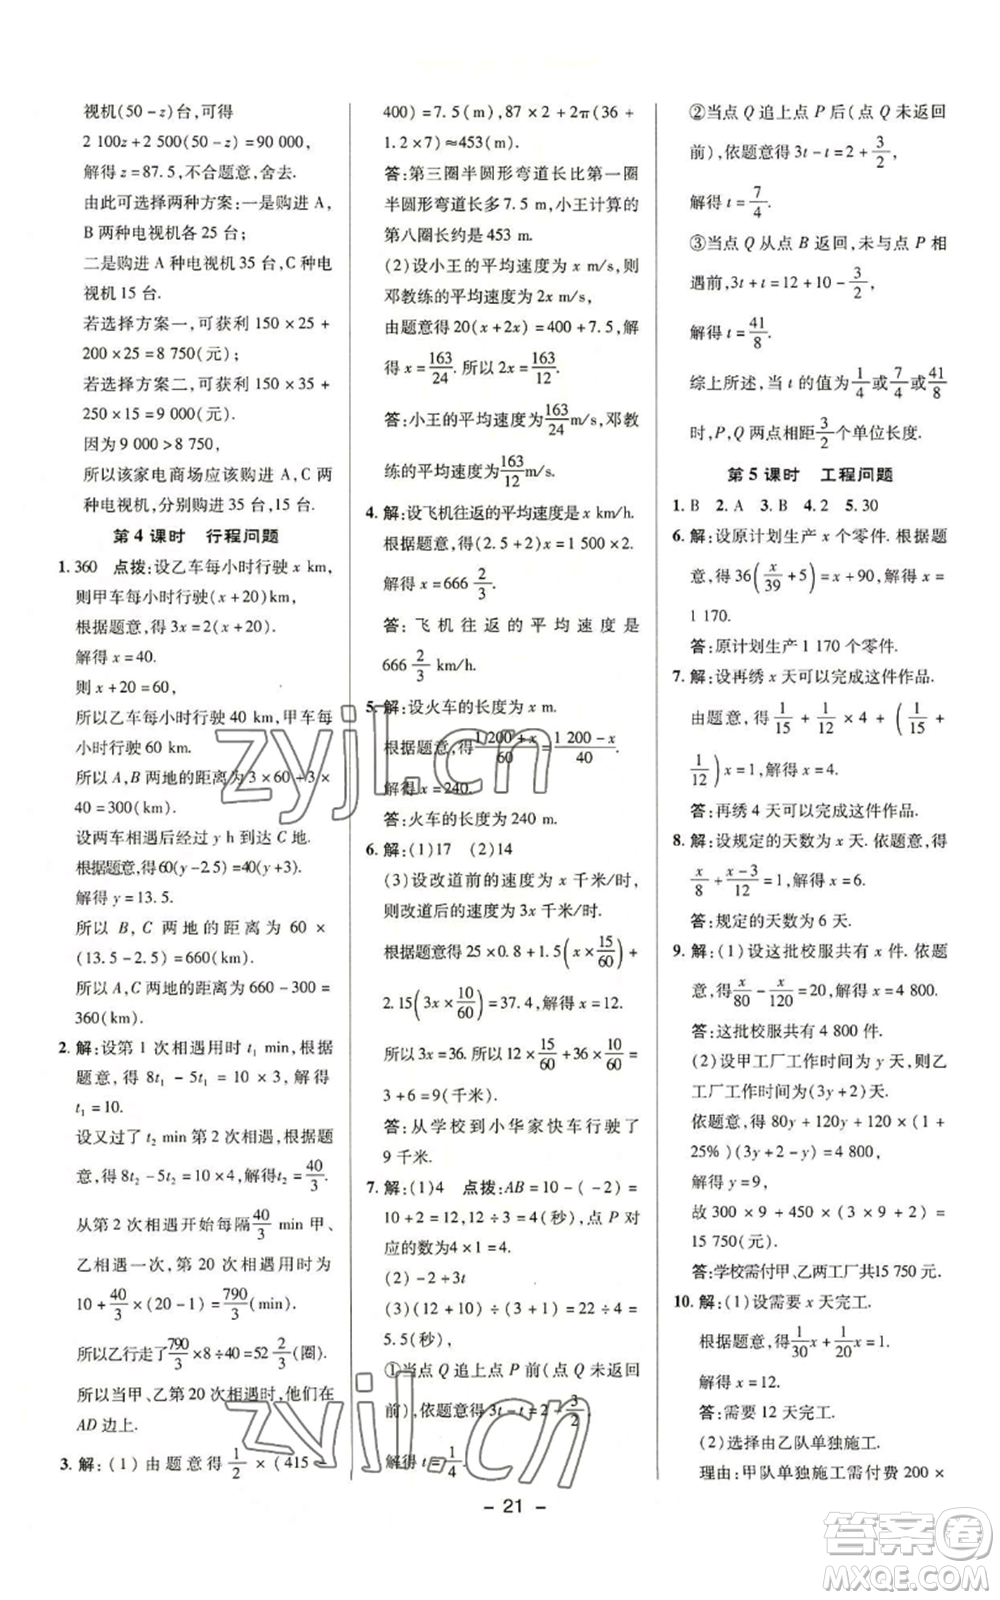 视机(50-z)台,可得
2 100z+2 500(50-z)=90 000,
解得 z=87.5,不合题意,舍去.
由此可选择两种方案:一是购进 A,
B 两种电视机各 25 台;
二是购进 A 种电视机 35 台,C 种电
视机 15 台.
若选择方案一,可获利 150×25+
200×25=8 750(元);
若选择方案二,可获利 150×35+
250×15=9 000(元).
因为 9 000>8 750,
所以该家电商场应该购进 A、C 两
种电视机,分别购进 35 台、15 台.
第 4 课时 行程问题
1. 360 点拨:设乙车每小时行驶 x km,
则甲车每小时行驶(x+20)km,
根据题意,得 3x=2(x+20),
解得 x=40.
则 x+20=60,
所以乙车每小时行驶 40 km,甲车每
小时行驶 60 km.
所以 A,B 两地的距离为3×60+3×
40=300(km).
设两车相遇后经过 y h 到达 C 地.
根据题意,得60(y-2.5)=40(y+3).
解得 y=13.5.
所以 B, C 两地的距离为 60 ×
(13.5-2.5)=660(km).
所以 A,C 两地的距离为 660-300=
360(km).
2. 解:设第 1 次相遇用时 t₁ min,根据
题意,得 8t₁-5t₁=10×3,解得
t₁=10.
设又过了 t₂ min 第 2 次相遇,根据题
意,得 8t₂-5t₂=10×4,解得 t₂=40/3.
从第 2 次相遇开始每隔40/3 min 甲、
乙相遇一次,第 20 次相遇时间为
10+40/3×(20-1)=790/3(min).
所以乙行走了790/3×8÷40=52 2/3(圈).
所以当甲、乙第 20 次相遇时,他们在
AD 边上.
3. 解:(1)由题意得 1/2 ×(415-
400)=7.5(m),87×2+2π(36+
1.2×7)≈453(m).
答:第三圈半圆形弯道长比第一圈
半圆形弯道长多 7.5 m,小王计算的
第八圈长约是 453 m.
(2)设小王的平均速度为 x m/s,则
邓教练的平均速度为 2x m/s,
由题意得 20(x+2x)=400+7.5,解
得 x=163/24.所以 2x=163/12.
答:小王的平均速度为163/24 m/s,邓教
练的平均速度为163/12 m/s.
4. 解:设飞机往返的平均速度是 x km/h.
根据题意,得(2.5+2)x=3 000,
解得 x=666 2/3.
答:飞机往返的平均速度是
666 2/3 km/h.
5. 解:设火车的长度为 x m.
根据题意,得(1 200+x)/60=(1 200-x)/40.
解得 x=240.
答:火车的长度为 240 m.
6. 解:(1)17 (2)14
(3)设改道前的速度为 x 千米/时,
则改道后的速度为 3x 千米/时.
根据题意得 25×0.8+1.5(x×15/60)+
2.15(3x×10/60)=37.4,解得 x=12,
所以 3x=36.所以 12×15/60+36×10/60=
3+6=9(千米).
答:从学校到小华家快车行驶了
9 千米.
7. 解:(1)4 点拨:AB=10-(-2)=
10+2=12,12÷3=4(秒),点 P 对
应的数为4×1=4.
(2)-2+3t
(3)(12+10)÷(3+1)=22÷4=
5.5(秒),
①当点 Q 追上点 P 前(点 Q 未返回
前),依题意得 3t-t=2-3/2,
解得 t=1/4.
②当点 Q 追上点 P 后(点 Q 未返回
前),依题意得 3t-t=2+3/2,
解得 t=7/4.
③当点 Q 从点 B 返回,未与点 P 相
遇前,3t+t=12+10-3/2,
解得 t=41/8.
综上所述,当 t 的值为1/4或7/4或41/8
时,P,Q 两点相距3/2个单位长度.
第 5 课时 工程问题
1. B 2. A 3. B 4. 2 5. 30
6. 解:设原计划生产 x 个零件.根据题
意,得 36(x/39+5)=x+90,解得 x=
1 170.
答:原计划生产 1 170 个零件.
7. 解:设再绣 x 天可以完成这件作品.
由题意,得 1/15 + 1/12 × 4 + (1/15 +
1/12)x=1,解得 x=4.
答:再绣 4 天可以完成这件作品.
8. 解:设规定的天数为 x 天.依题意,得
x/8+(x-3)/12=1,解得 x=6.
答:规定的天数为 6 天.
9. 解:(1)设这批校服共有 x 件.依题
意,得x/80-x/120=20,解得 x=4 800.
答:这批校服共有 4 800 件.
(2)设甲工厂工作时间为 y 天,则乙
工厂工作时间为(3y+2)天.
依题意,得 80y+120y+120×(1+
25%)(3y+2-y)=4 800,
解得 y=9.
故 300×9+450×(3×9+2)=
15 750(元).
答:学校需付甲、乙两工厂共15 750元.
10. 解:(1)设需要 x 天完工.
根据题意,得1/30x+1/20x=1.
解得 x=12.
答:需要 12 天完工.
(2)选择由乙队单独施工.
理由:甲队单独施工需付费 200×
- 21 -
zyjl.cn
zyjl.cn
答案圈
MXQE.COM